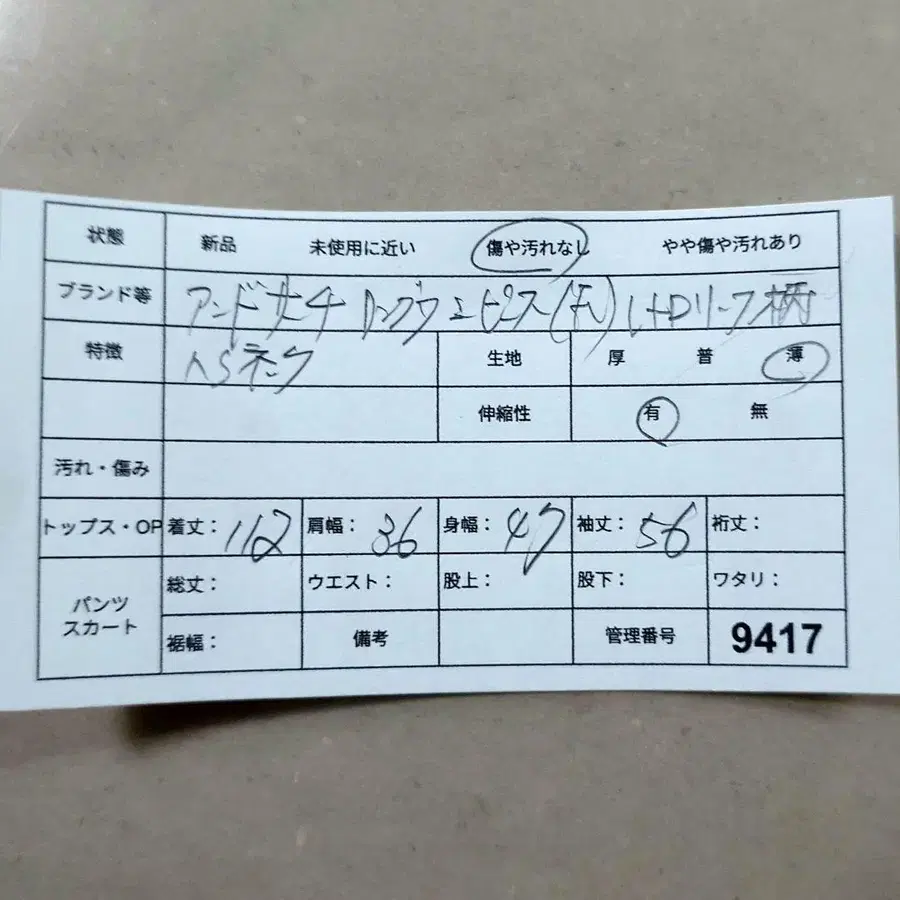 状態 新品 未使用に近い 傷や汚れなし やや傷や汚れあり
ブランド等 アンド ロングワンピース レトロリーフ柄
特徴 ネック 生地 厚 普 薄
伸縮性 有 無
汚れ・傷み
トップス・OP 着丈: 112 肩幅: 36 身幅: 47 袖丈: 56 裄丈:
パンツ スカート 総丈: ウエスト: 股上: 股下: ワタリ:
裾幅: 備考 管理番号 9417